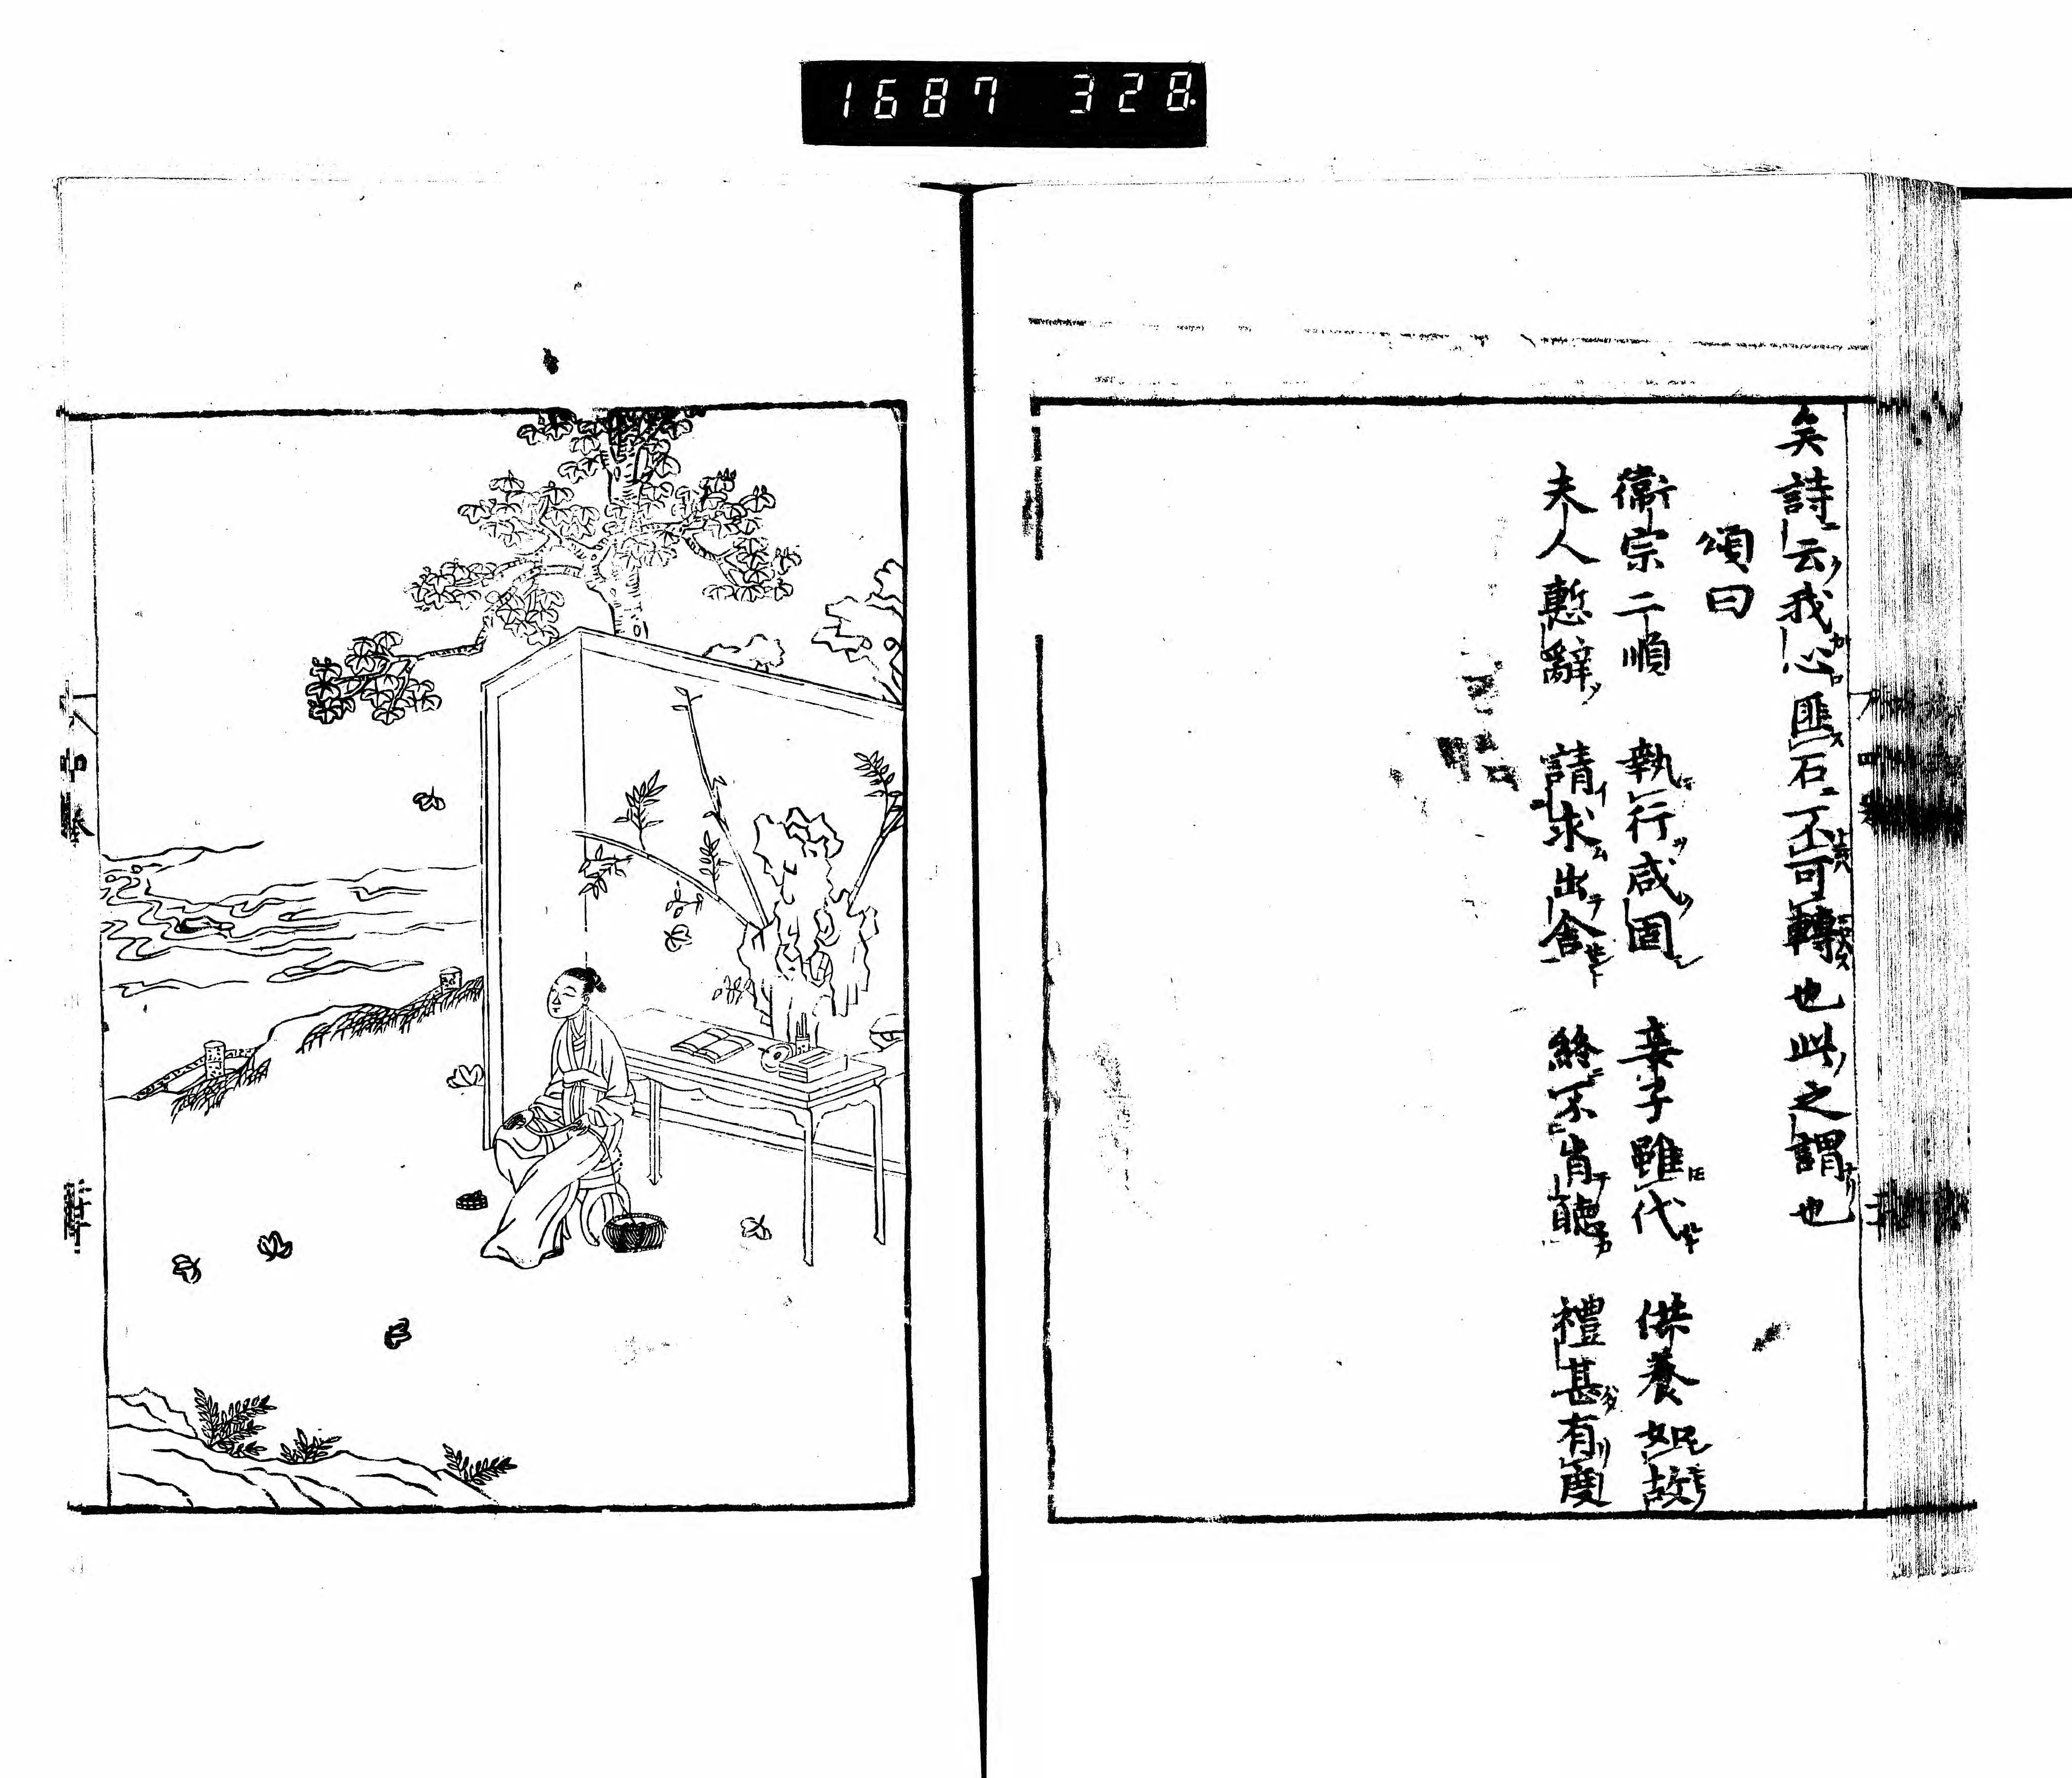 1687 328
矣詩云我心匪石不可轉也此之謂也
頌曰
衞宗二順 執行咸固 妾子雖代 供養如故
夫人慙辭 請求出舍 終不肯聽 禮甚有度